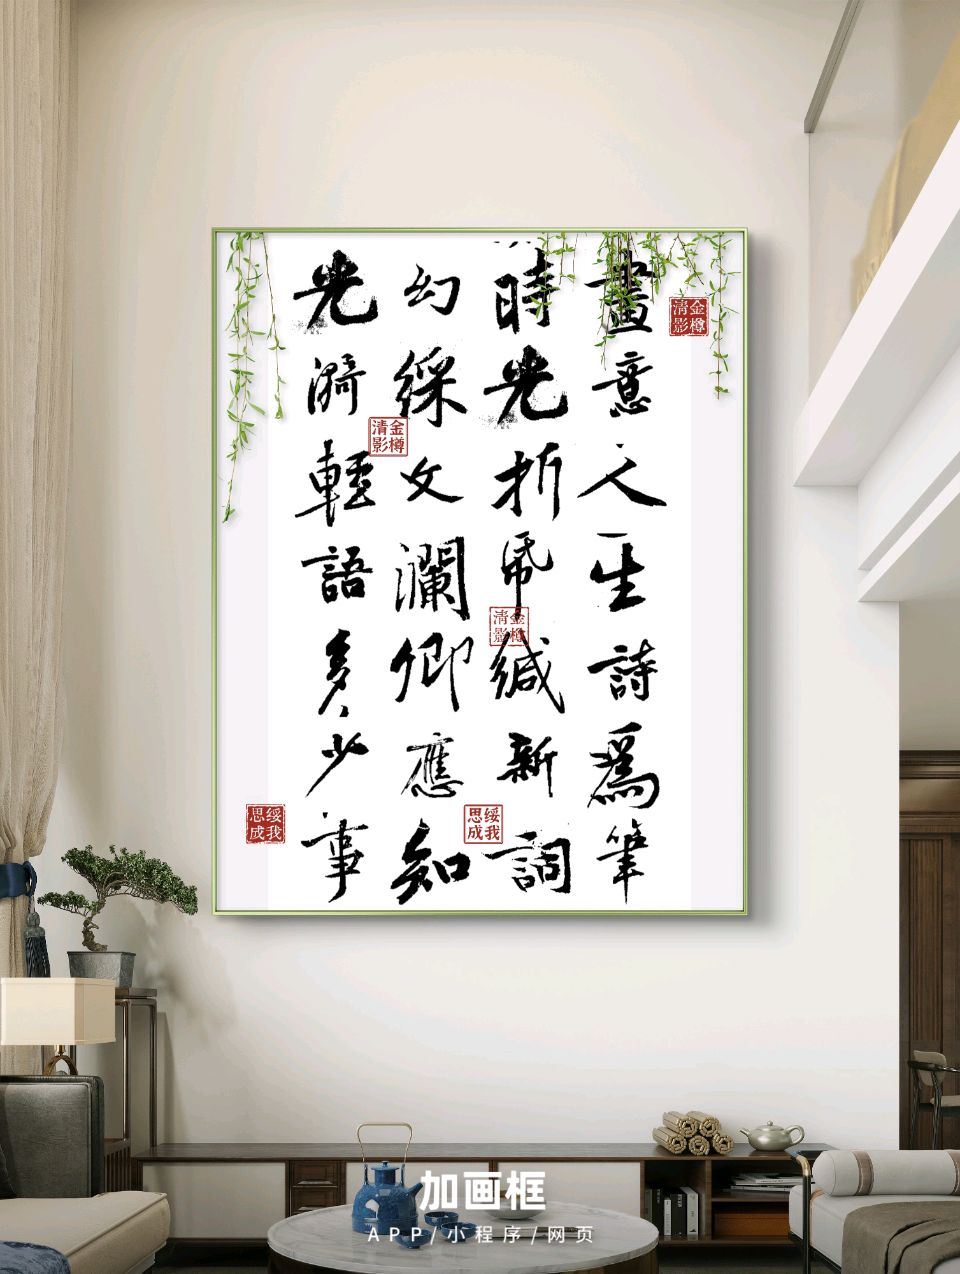 畫意人生詩爲筆
時光折帋緘新詞
幻綵文瀾卿應知
光漪輕語多少事
金樽清影
金樽清影
金樽清影
绥我思成
绥我思成
加画框
APP/小程序/网页